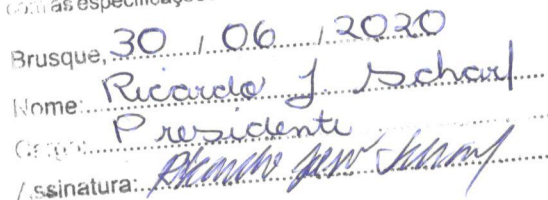 com as especificações
Brusque, 30 / 06 / 2020
Nome: Ricardo J Scharf
Cargo: Presidente
Assinatura: